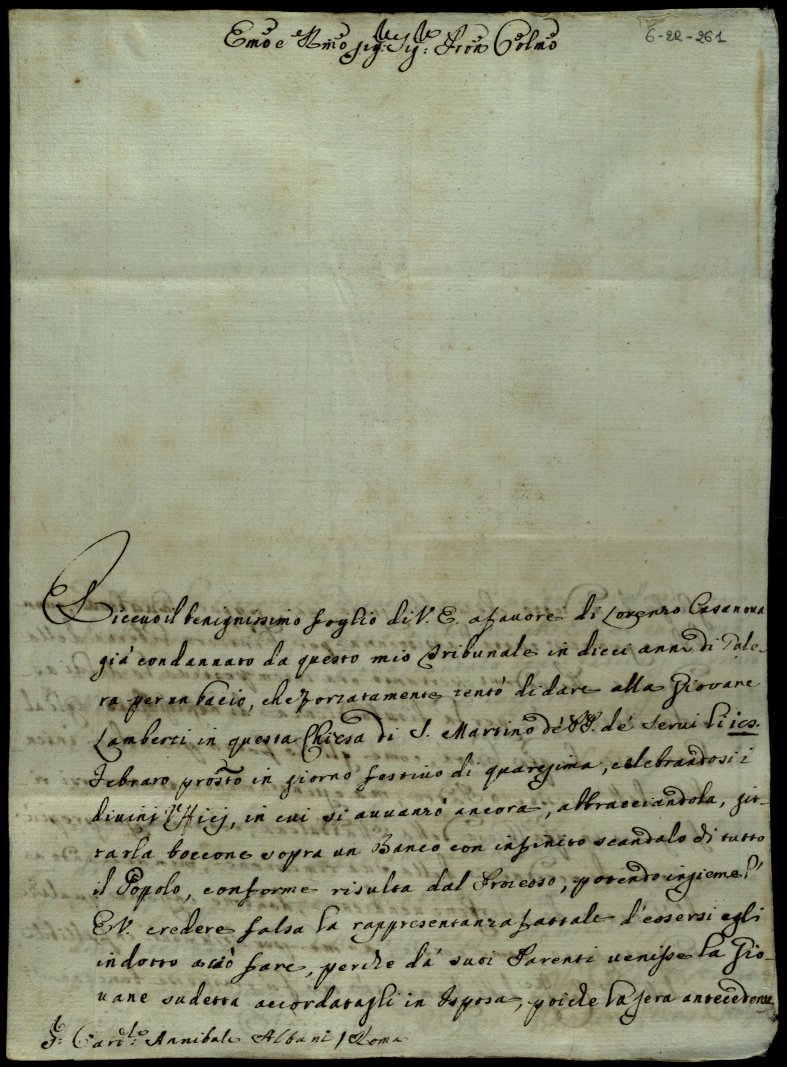 Emo e Rmo Sig:re Sig:re Pron Colmo
6-22-261
Riceuo il benignissimo foglio di V. E. a fauore di Lorenzo Casanoua
già condannato da questo mio Tribunale in dieci anni di Gale-
ra per un bacio, che forzatamente tentò di dare alla Giouane
Lamberti in questa Chiesa di S. Martino de PP. de Serui li
Febraro prosto in giorno festiuo di quaresima, celebrandosi i
diuini Vfficij, in cui si auuanzò ancora, abbracciandola, git-
tarla boccone sopra un Banco con infinito scandalo di tutto
il Popolo, conforme risulta dal Processo, potendo insieme l'
E.V. credere falsa la rappresentanza fattale d'essersi egli
indotto a ciò fare, perche da suoi Parenti uenisse la Gio-
uane sudetta accordatagli in Isposa, poiche la sera antecedente
S:r Card:le Annibale Albani / Roma